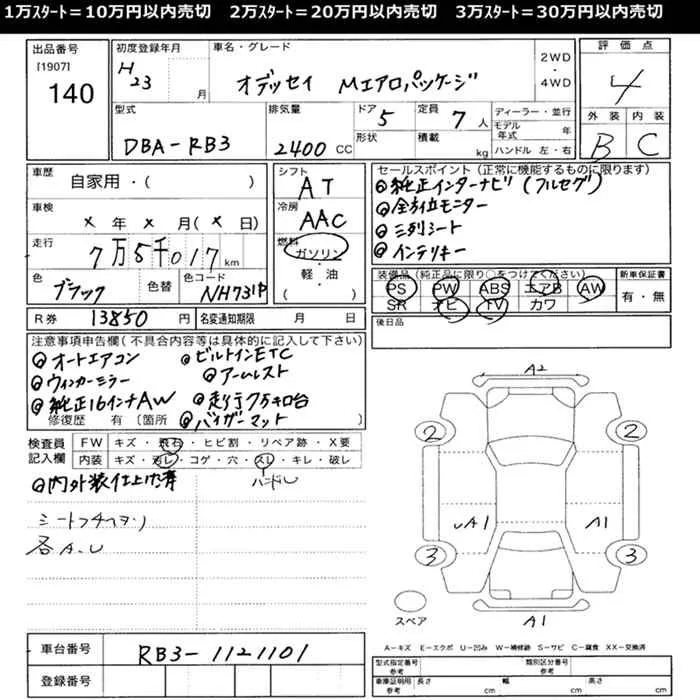 1万スタート＝10万円以内売切　2万スタート＝20万円以内売切　3万スタート＝30万円以内売切
出品番号 初度登録年月 車名・グレード 評価点
[1907]
140 H23 月 オデッセイ Mエアロパッケージ 2WD・4WD 4
型式 排気量 ドア 定員 ディーラー・並行 外装 内装
DBA-RB3 2400 CC 5 7 人 モデル年式 年 B C
形状 積載 kg ハンドル 左・右
車歴 自家用・( )
車検 × 年 × 月 ( × 日)
走行 7万5千017 km
色 ブラック 色替 色コード NH731P
R券 13850 円 名変通知期限 月 日
シフト AT
冷房 AAC
燃料 ガソリン・軽油
( )
セールスポイント (正常に機能するものに限ります)
純正インターナビ(フルセグ)
全方位モニター
三列シート
インテリキー
装備品 (純正品に限り○をつけてください) 新車保証書
PS PW ABS エアB AW 有・無
SR ナビ TV カワ
後日品
注意事項申告欄 (不具合内容等は具体的に記入して下さい)
オートエアコン ビルトインETC
ウィンカーミラー アームレスト
純正16インチAW 走行7万キロ台
修復歴 有 〔箇所 〕 バイザーマット
検査員記入欄 FW キズ・飛石・ヒビ割・リペア跡・X要
内装 キズ・汚レ・コゲ・穴・スレ・キレ・破レ
内外装仕上げ済 ハンドル
各A.U
A2
2 2
A1 A1
3 3
スペア A1
車台番号 RB3-1121101
登録番号
A−キズ E−エクボ U−凹み W−補修跡 S−サビ C−腐食 XX−交換済
型式指定番号 参考 類別区分番号 参考
車庫証明用 参考 長さ cm 幅 cm 高さ cm